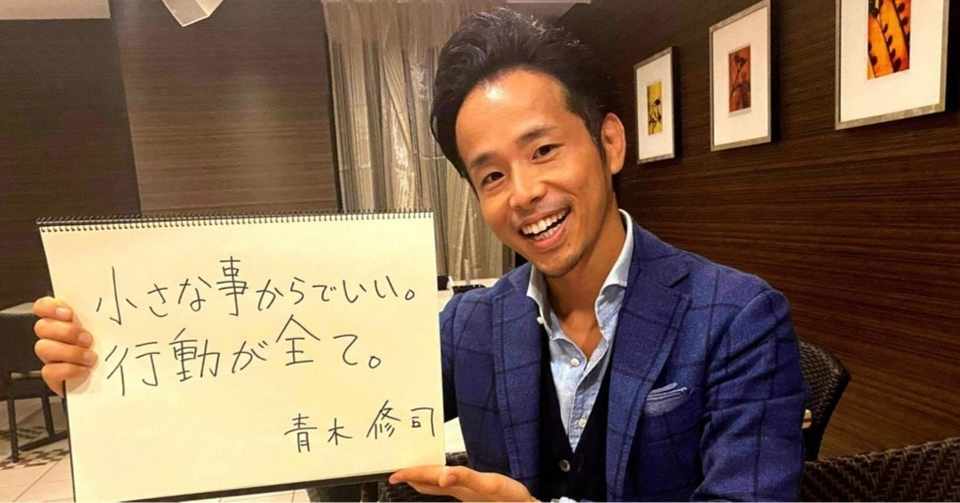 小さな事からでいい。
行動が全て。
青木修司